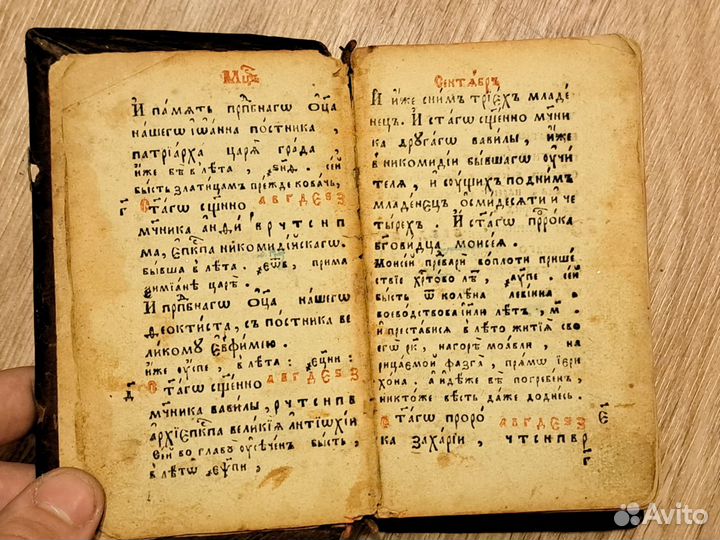 Мц҃ъ
И па́мять прпⷣбнагѡ ѻц҃а
на́шегѡ іѡа́нна по́стника,
патрїа́рха царѧ̀ гра́да,
и҆́же бѣ̀ в лѣ́та, сей
бы́сть златица́мъ пре́жде кова́чь,
г҃
Ст҃а́гѡ сщ҃е́нно А В Г Д Е Ѕ З
мч҃ника а҆н.ѳи́ в р ч т с н п
ма, є҆пⷭ҇кпа никомиди́йскагѡ.
бы́вша в лѣ́та. при ма
ѯимїа́нѣ царѣ̀.
И прпⷣбнагѡ ѻц҃а на́шегѡ
ѳеокти́ста, съ по́стника ве
ли́кому Еѵѳи́мїю.
и҆́же ᲂу҆спѐ, в лѣ́та:
д҃
Ст҃а́гѡ сщ҃е́нно А В Г Д Е Ѕ З
мч҃ника вави́лы, р ч т с н п в
а҆рхїє҆пⷭ҇кпа вели́кїѧ а҆нтїѡхі́й
во главꙋ̀ ᲂу҆сѣче́нъ бы́сть,
в лѣ́тѡ
Сентѧ́брь
И и҆́же с ни́мъ трїе́хъ младе́
нецъ. И ст҃а́гѡ сщ҃е́нно мч҃ни
ка дрꙋга́гѡ вави́лы, и҆́же
в никоми́дїи бы́вшагѡ ᲂу҆чи́
телѧ, и҆ сꙋ́щихъ под ни́мъ
младе́нецъ ѻ҆смидесѧти и҆ че
ты́рехъ. И ст҃а́гѡ прⷪ҇ро́ка
бг҃ови́дца моисе́ѧ.
Моисе́й предвари́ во пло́ти прише́
ствїе хрⷭ҇то́во лѣ́тъ, сей
бы́сть ѿ колѣ́на леві́ина.
воево́дствова і҆и҃лю лѣ́тъ, м҃.
и҆ преста́висѧ в лѣ́то житїѧ̀ сво
егѡ̀ рк҃, на горѣ̀ моа́вли, на
рица́емой фазга̀, прѧ́мѡ і҆ери
хо́на. а҆ и҆дѣ́же є҆̀ погребе́нъ,
никто́же вѣ́сть да́же до дне́сь.
Ст҃а́гѡ проро́ А В Г Д Е Ѕ З є҃
ка заха́рїи, ч т с н п в р
г҃
Avito